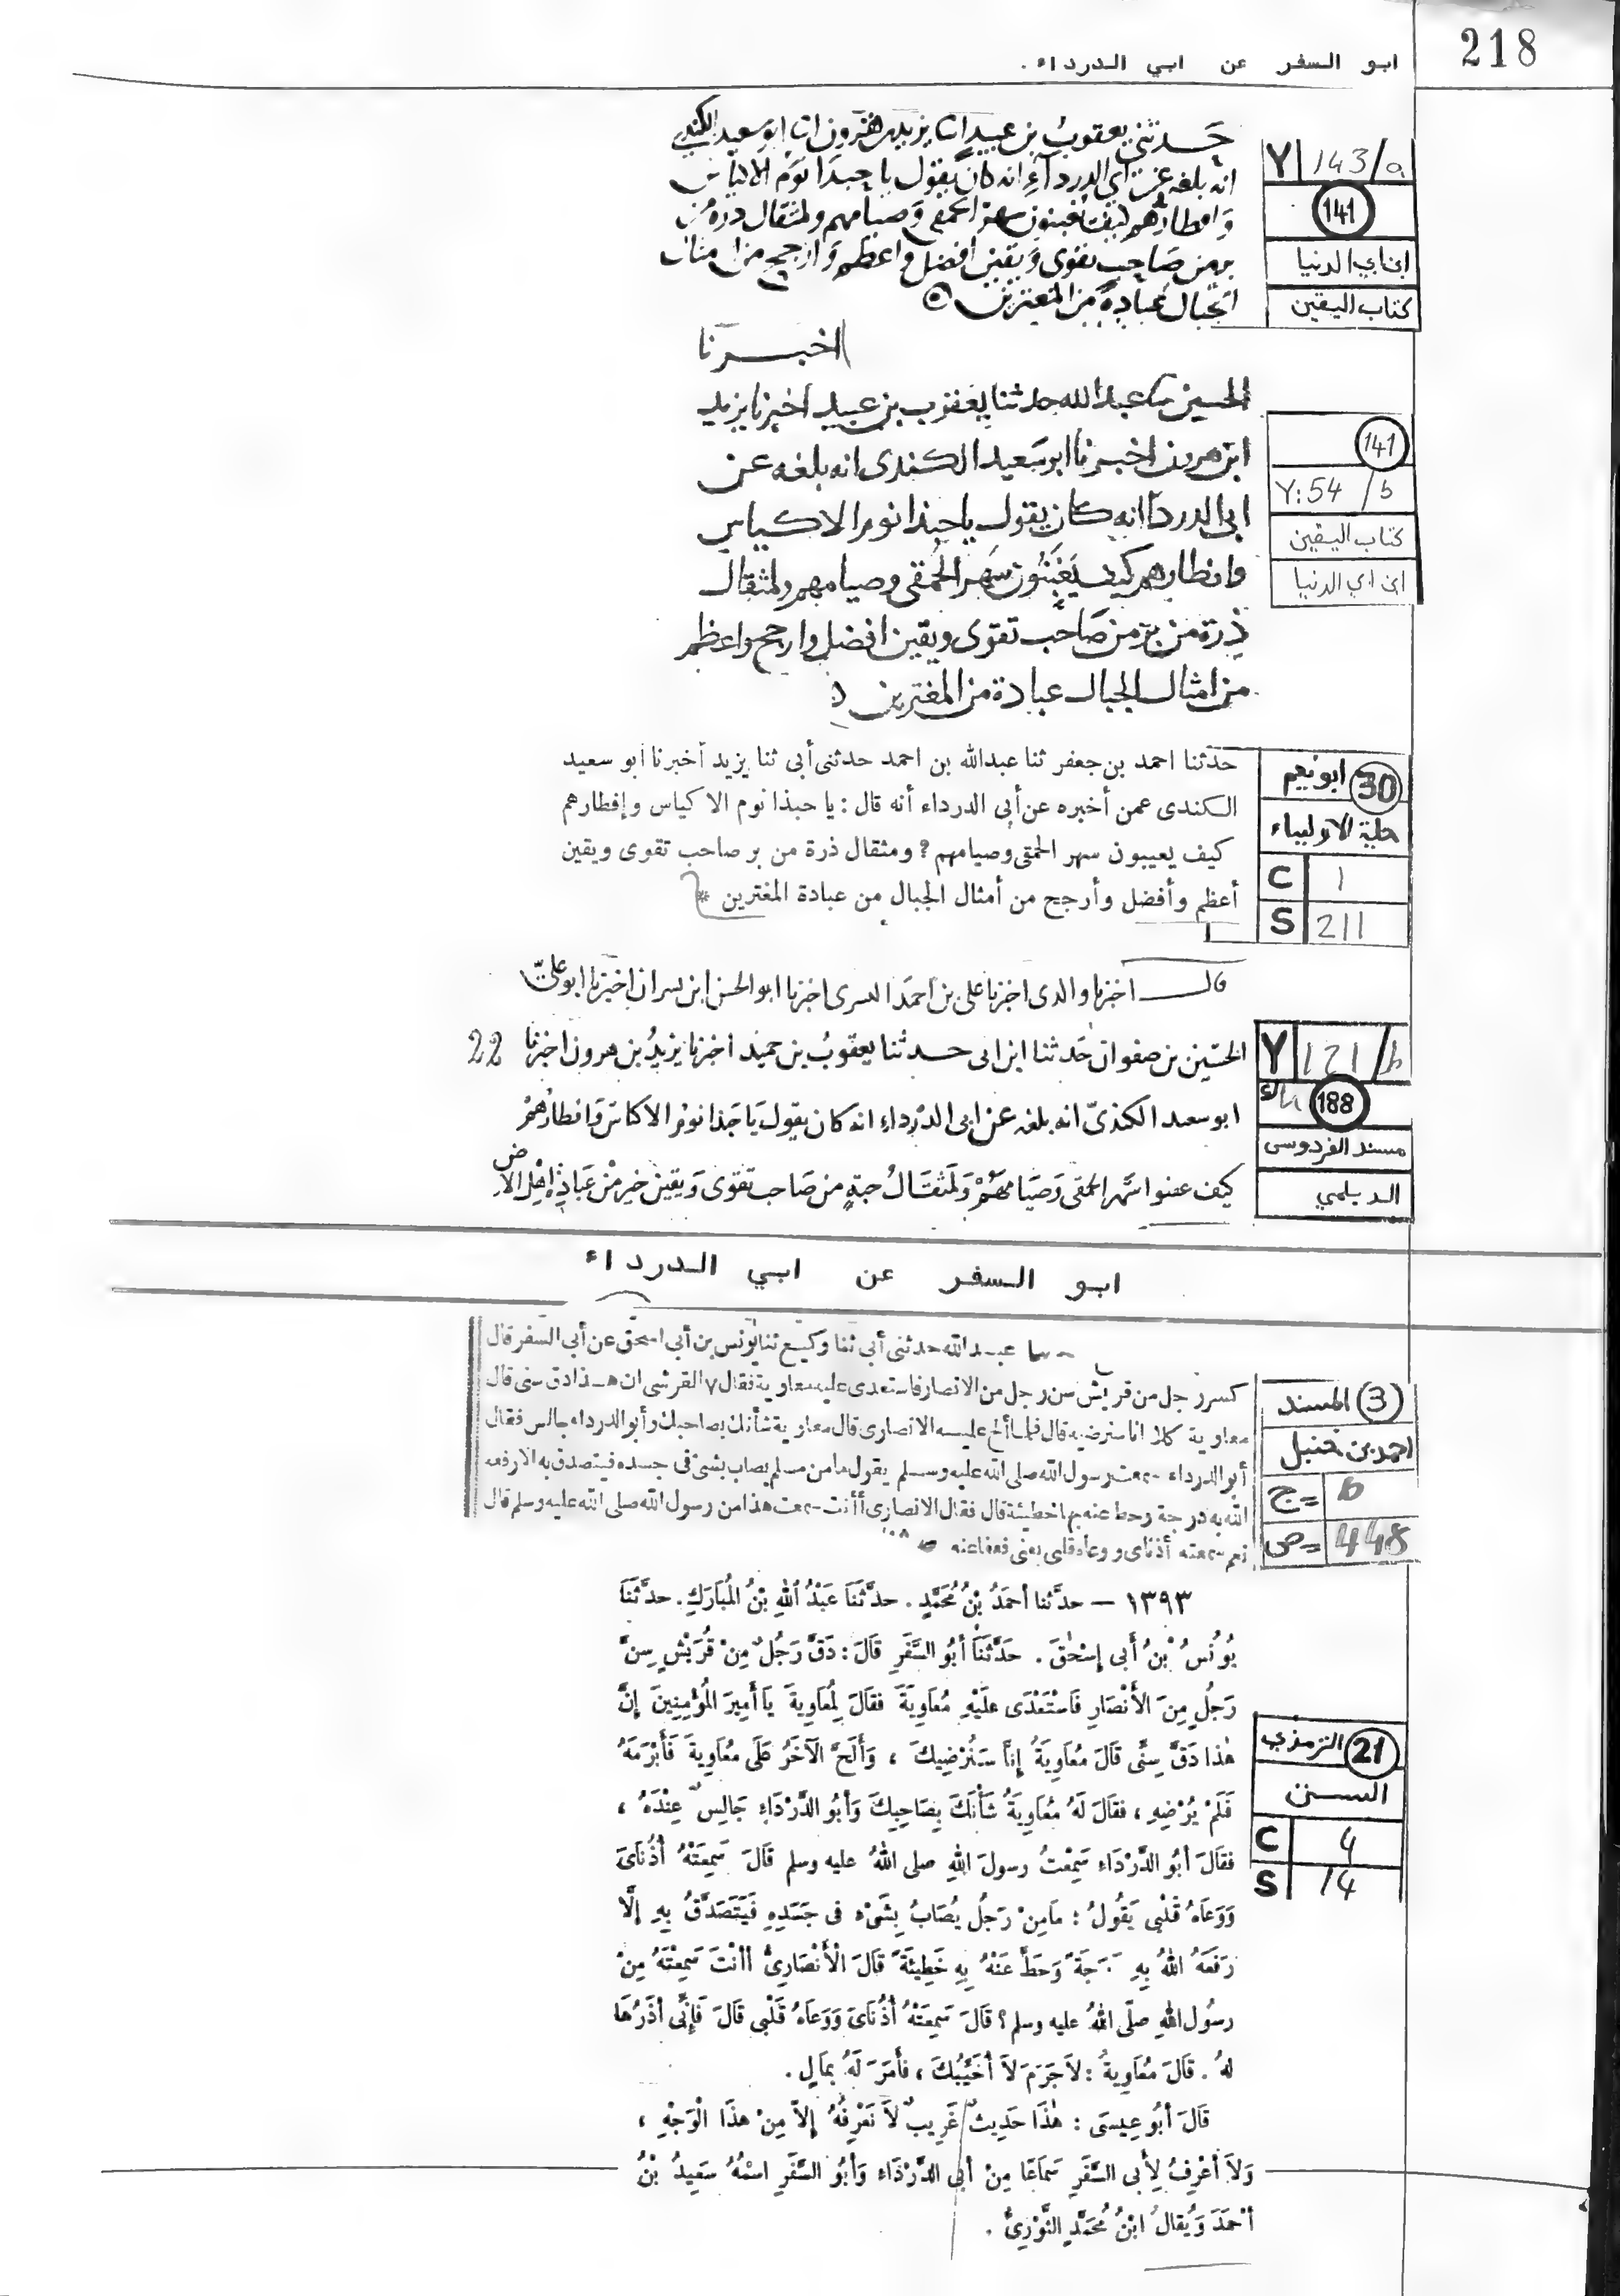 218
ابو السفر عن ابي الدرداء .
Y 143/a
141
ابن ابي الدنيا
كتاب اليقين
حدثني يعقوب بن عبيد انا يزيد بن هرون انا ابو سعيد الكندي
انه بلغه عن ابي الدرداء انه كان يقول يا حبذا نوم الاكياس
وافطارهم كيف يغبنون سهر الحمقى وصيامهم ولمثقال ذرة من
بر من صاحب تقوى ويقين افضل واعظم وارجح من امثال
الجبال عبادة من المغترين
اخبرنا
الحسين بن عبد الله حدثنا يعقوب بن عبيد اخبرنا يزيد
ابن هرون اخبرنا ابو سعيد الكندى انه بلغه عن
ابى الدردا انه كان يقول يا حبذا نوم الاكياس
وافطارهم كيف يَغبَنُون سَهر الحمقى وصيامهم ولمثقال
ذرة من بر من صَاحب تقوى ويقين افضل وارجح واعظم
من امثال الجبال عبادة من المغترين
141
Y:54 /b
كتاب اليقين
ابن ابي الدنيا
حدثنا احمد بن جعفر ثنا عبدالله بن احمد حدثنى أبى ثنا يزيد أخبرنا أبو سعيد
الكندى عمن أخبره عن أبى الدرداء أنه قال : يا حبذا نوم الاكياس وإفطارهم
كيف يعيبون سهر الحمقى وصيامهم ؟ ومثقال ذرة من بر صاحب تقوى ويقين
أعظم وأفضل وأرجح من أمثال الجبال من عبادة المغترين *
30 ابو نعيم
حلية الاولياء
C 1
S 211
قال اخبرنا والدى اخبرنا على بن احمد البسرى اخبرنا ابو الحسن ابن بسران اخبرنا ابو علىّ
الحسين بن صفوان حَدثنا ابن ابى حدثنا يعقوبُ بن حميد اخبرنا يزيدُ بن هرون اخبرنا 22
ابو سعد الكندىّ انه بلغه عن ابى الدرداء انه كان يقول يَا حَبذا نوم الاكاس وَافطارُهُمْ
كيف عىنوا سَهر الحمقى وَصيَامَهُمْ وَلَمثقَالُ حبةٍ من صَاحب تقوى وَيقين خير مْن عبَادة اهْل الارض
Y 121/b
188
مسند الفردوسى
الديلمي
ابو السفر عن ابي الدرداء
عبد الله حدثنى أبى ثنا وكيع ثنا يونس بن أبى اسحق عن أبى السفر قال
كسر رجل من قريش سن رجل من الانصار فاستعدى عليه معاوية فقال القرشى ان هذا دق سنى قال
معاوية كلا انا سنرضيه قال فلما ألح عليه الانصارى قال معاوية شأنك بصاحبك وأبو الدرداء جالس فقال
أبو الدرداء سمعت رسول الله صلى الله عليه وسلم يقول ما من مسلم يصاب بشئ فى جسده فيتصدق به الا رفعه
الله به درجة وحط عنه بها خطيئة قال فقال الانصارى أأنت سمعت هذا من رسول الله صلى الله عليه وسلم قال
نعم سمعته أذناى ووعاه قلبى يعنى فعفا عنه
(3) المسند
احمد بن حنبل
ج= 6
ص= 448
١٣٩٣ — حدَّثنا أحمَدُ بْنُ مُحَمَّدٍ . حدَّثَنَا عَبْدُ اللهِ بْنُ المُبَارَكِ . حدَّثَنَا
يُونُسُ بْنُ أَبى إسْحٰقَ . حَدَّثَنَا أَبُو السَّفَرِ قَالَ : دَقَّ رَجُلٌ مِنْ قُرَيْشٍ سِنَّ
رَجُلٍ مِنَ الأَنْصَارِ فَاسْتَعْدَى عَلَيْهِ مُعَاوِيَةَ فقَالَ لِمُعَاوِيةَ يَا أَمِيرَ المُؤْمِنِينَ إِنَّ
هٰذا دَقَّ سِنِّى قَالَ مُعَاوِيَةُ إِنَّا سَنُرْضِيكَ ، وَأَلَحَّ الآخَرُ عَلَى مُعَاوِيةَ فَأَبْرَمَهُ
فَلَمْ يُرْضِهِ ، فقَالَ لَهُ مُعَاوِيَةُ شَأْنَكَ بِصَاحِبِكَ وَأَبُو الدَّرْدَاءِ جَالِسٌ عِنْدَهُ ،
فقَالَ أَبُو الدَّرْدَاءِ سَمِعْتُ رسولَ اللهِ صلى اللهُ عليه وسلم قَالَ سَمِعَتْهُ أُذُنَاىَ
وَوَعَاهُ قَلْبى يَقُولُ : مَامِنْ رَجُلٍ يُصَابُ بِشَىْءٍ فى جَسَدِهِ فَيَتَصَدَّقُ بِهِ إلَّا
رَفَعَهُ اللهُ بِهِ دَرَجَةً وَحَطَّ عَنْهُ بِهِ خَطِيئَةً قَالَ الْأَنْصَارِىُّ أأنْتَ سَمِعْتَهُ مِنْ
رسُول اللهِ صلّى اللهُ عليه وسلم ؟ قَالَ سَمِعَتْهُ أُذُنَاىَ وَوَعَاهُ قَلْبى قَالَ فَإِنِّى أَذَرُهَا
لهُ . قَالَ مُعَاوِيةُ : لاَ جَرَمَ لاَ أُخَيِّبُكَ ، فأَمَرَ لَهُ بمَالٍ .
قَالَ أَبُو عِيسَى : هٰذَا حَدِيثٌ غَرِيبٌ لاَ نَعْرِفُهُ إِلاَّ مِنْ هذَا الْوَجْهِ ،
وَلاَ أَعْرِفُ لِأَبى السَّفَرِ سَمَاعًا مِنْ أَبى الدَّرْدَاءِ وَأَبُو السَّفَرِ اسْمُهُ سَعِيدُ بْنُ
أَحْمَدَ وَيُقالُ ابْنُ مُحَمَّدٍ الثَّوْرِىُّ .
21 الترمذي
السنن
C 4
S 14